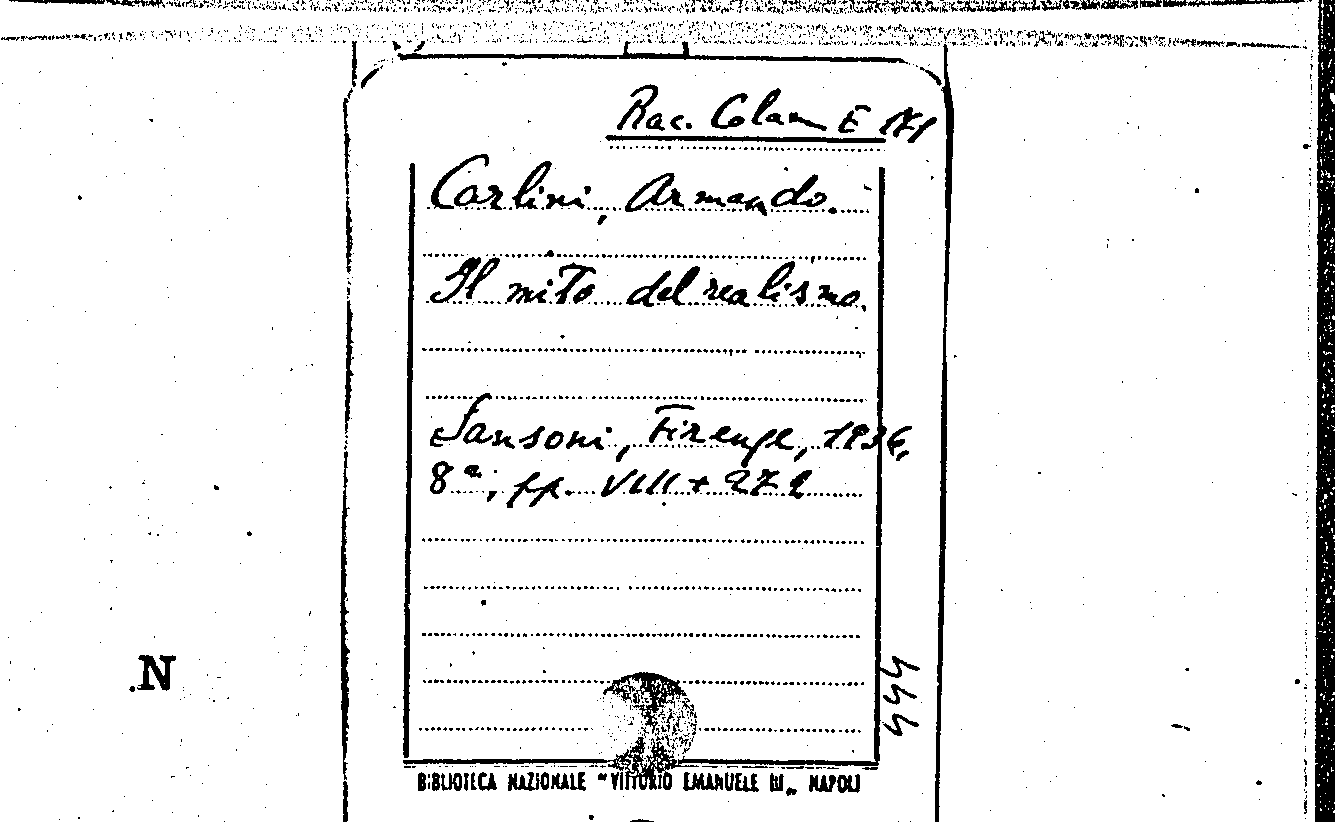 Rac. Colam E 171
Carlini, Armando.
Il mito del realismo.
Sansoni, Firenze, 1936,
8ª, pp. VIII + 272
444
N
BIBLIOTECA NAZIONALE "VITTORIO EMANUELE III„ NAPOLI